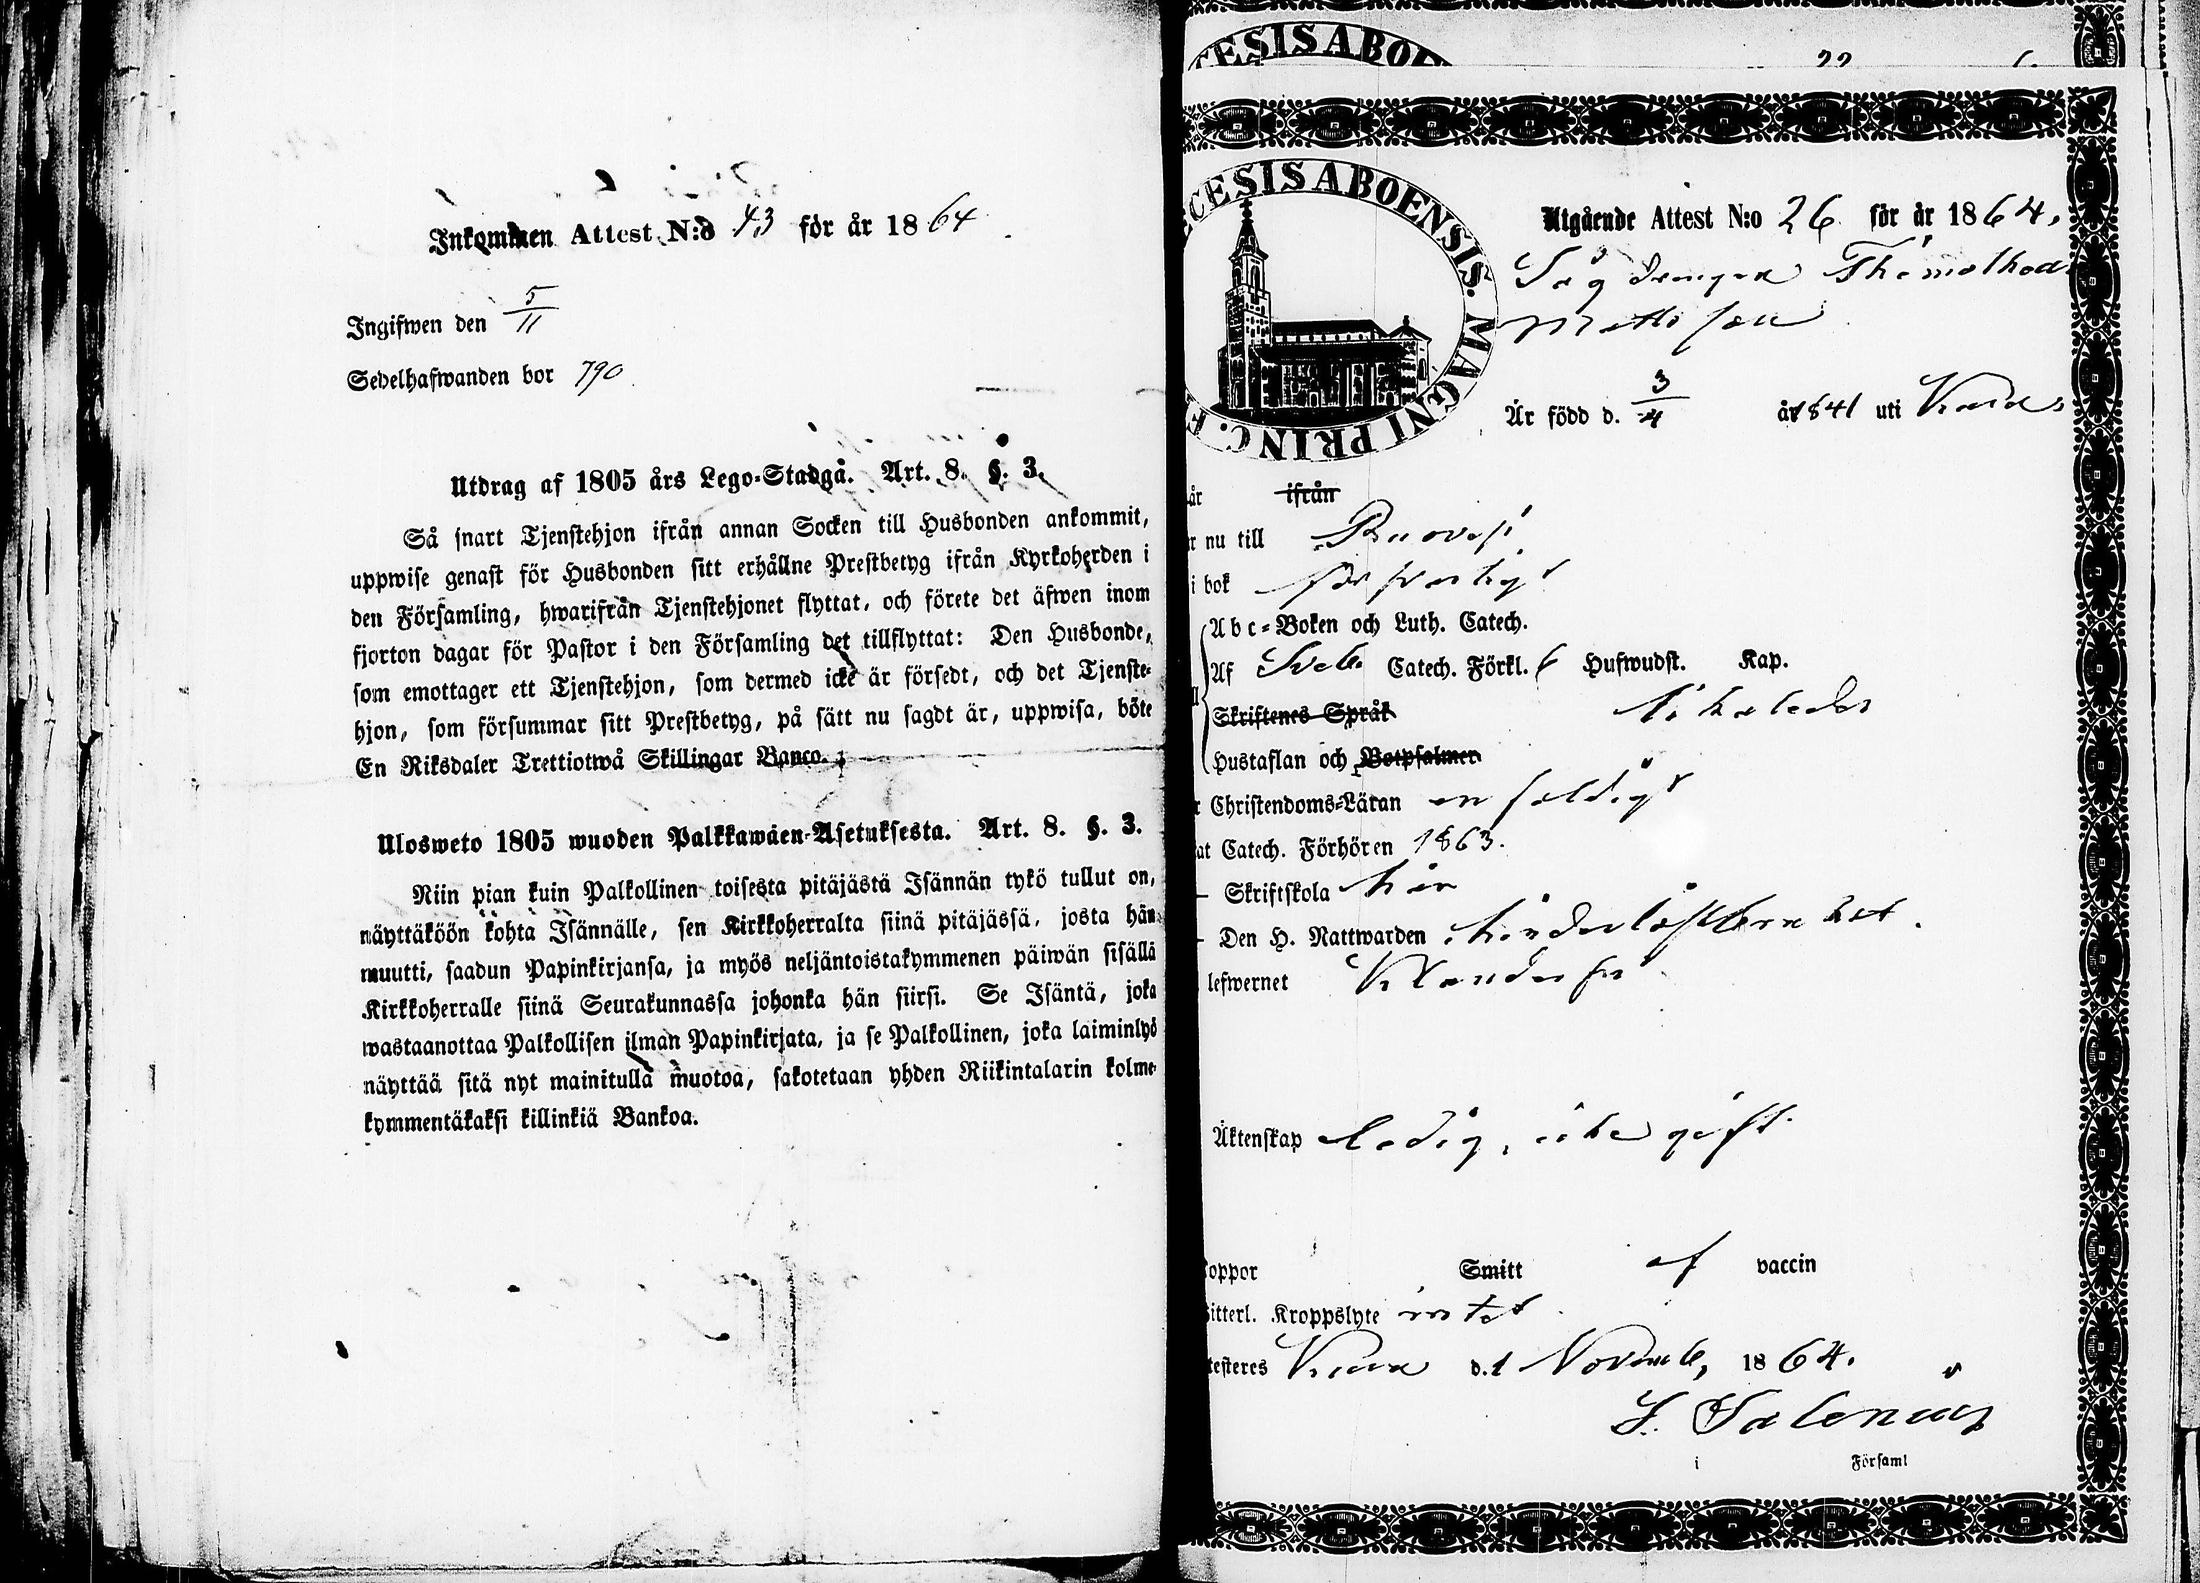 Inkommen Attest N:o 43 för år 1864
Ingifwen den 5/11
Sedelhafwanden bor 790
Utdrag af 1805 års Lego-Stadga. Art. 8. §. 3.
Så snart Tjenstehjon ifrån annan Socken till Husbonden ankommit,
uppwise genast för Husbonden sitt erhållne Prestbetyg ifrån Kyrkoherden i
den Församling, hwarifrån Tjenstehjonet flyttat, och förete det äfwen inom
fjorton dagar för Pastor i den Församling det tillflyttat: Den Husbonde,
som emottager ett Tjenstehjon, som dermed icke är försedt, och det Tjenste-
hjon, som försummar sitt Prestbetyg, på sätt nu sagdt är, uppwisa, böte
En Riksdaler Trettiotwå Skillingar Banco.
Ulosweto 1805 wuoden Palkkawäen-Asetuksesta. Art. 8. §. 3.
Niin pian kuin Palkollinen toisesta pitäjästä Isännän tykö tullut on,
näyttäköön kohta Isännälle, sen Kirkkoherralta siinä pitäjässä, josta hän
muutti, saadun Papinkirjansa, ja myös neljäntoistakymmenen päiwän sisällä
Kirkkoherralle siinä Seurakunnassa johonka hän siirsi. Se Isäntä, joka
wastaanottaa Palkollisen ilman Papinkirjata, ja se Palkollinen, joka laiminlyö
näyttää sitä nyt mainitulla muotoa, sakotetaan yhden Riikintalarin kolme-
kymmentäkaksi killinkiä Bankoa.
CESIS ABOE
22
CESIS ABOENSIS. MAGNI PRINC. F
Utgående Attest N:o 26 för år 1864.
Såg drengen Thimotheus
Mattsson
Är född d. 3/4 år 1841 uti
år ifrån
r nu till Ruovesi
i bok försvarligt
Abc-Boken och Luth. Catech.
Af Sveb. Catech. Förkl. 6 Hufwudst. Kap.
Skriftenes Språk
Hustaflan och Botpsalmer
r Christendoms-Läran enfaldigt
at Catech. Förhören 1863.
Skriftskola här
Den H. Nattwarden
lefwernet Klanderfri
Äktenskap Ledig, icke gift
oppor Smitt af vaccin
itterl. Kroppslyte intet
testeres d. 1 November 1864.
Församl
i